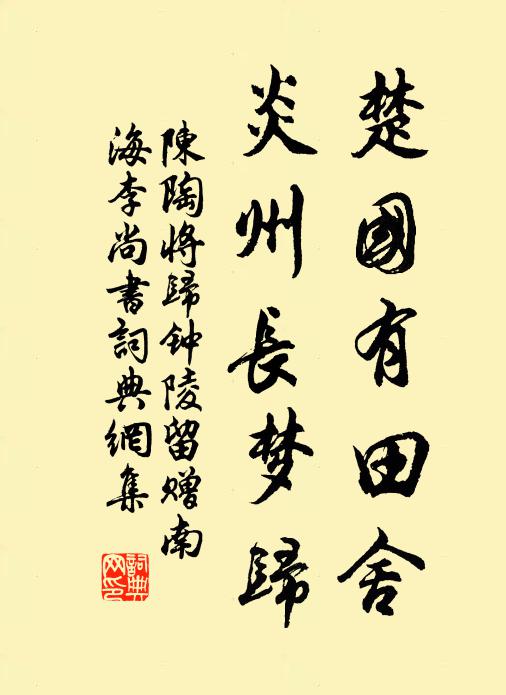 楚國有田舍
炎州長梦歸
陳陶將歸钟陵留赠南
海李尚書詞典網集
詞典
网印